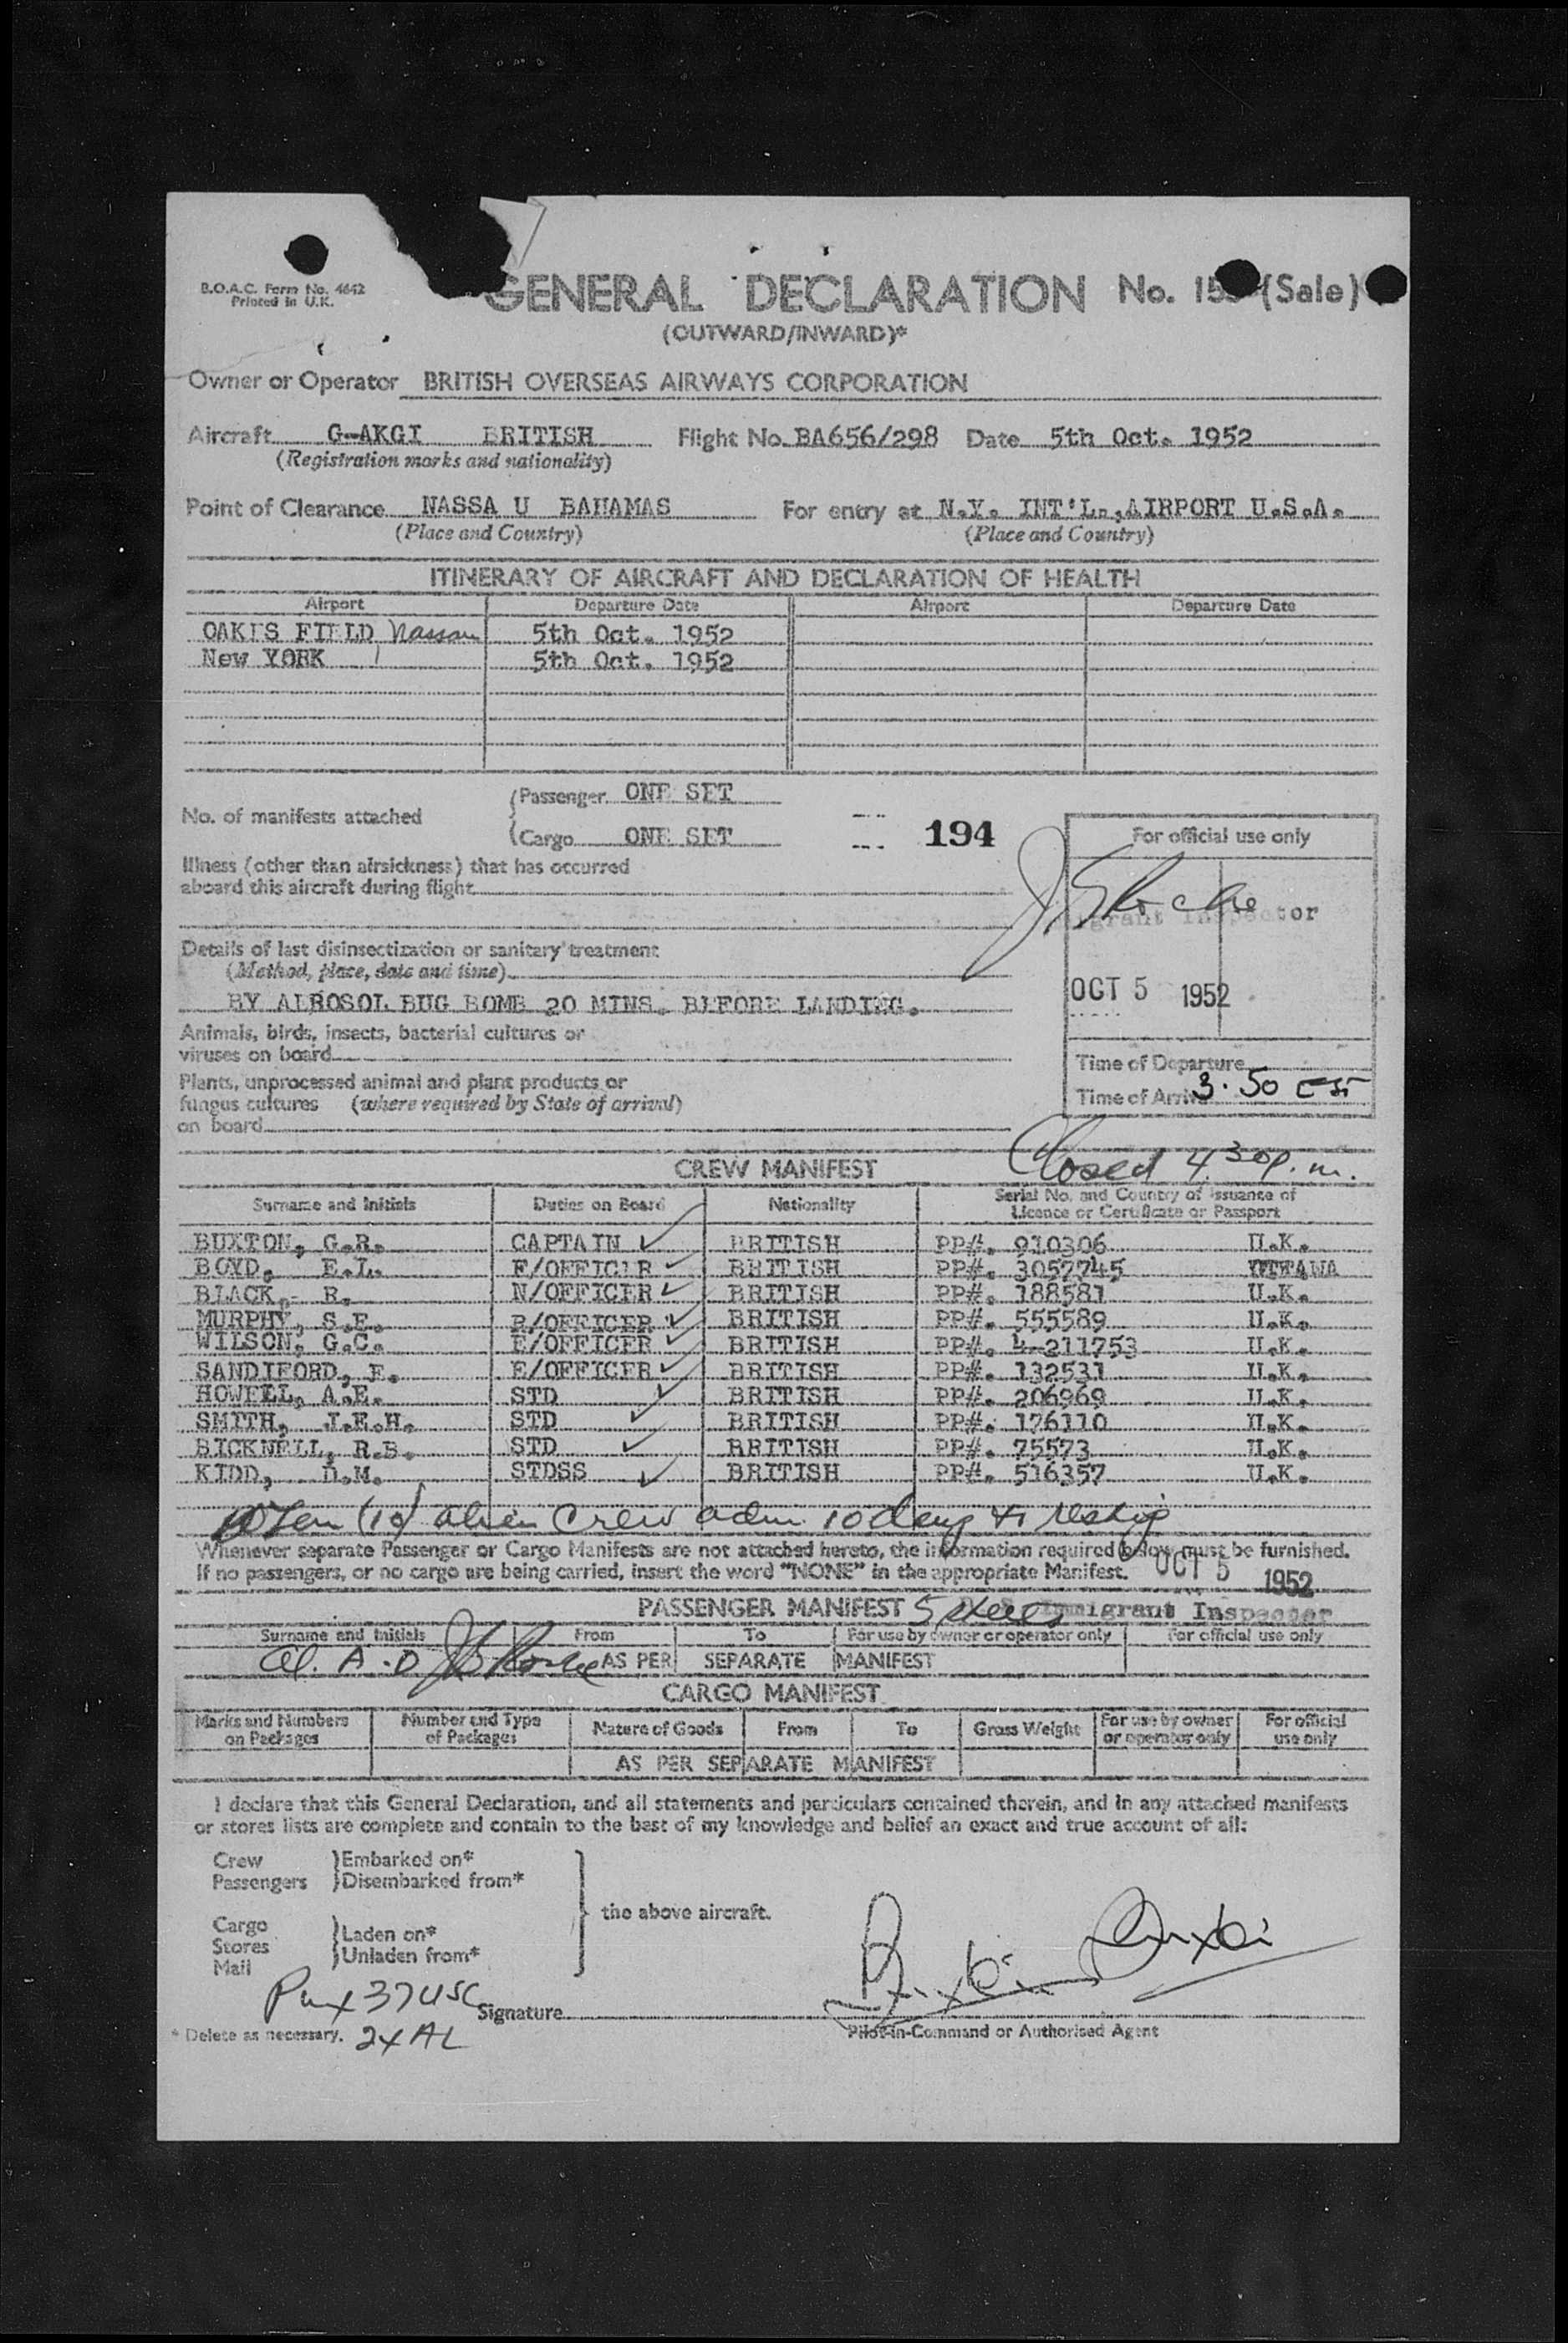 B.O.A.C. Form No. 4642
Printed in U.K.
GENERAL DECLARATION No. 15 (Sale)
(OUTWARD/INWARD)*
Owner or Operator BRITISH OVERSEAS AIRWAYS CORPORATION
Aircraft G-AKGI BRITISH Flight No. BA656/298 Date 5th Oct. 1952
(Registration marks and nationality)
Point of Clearance NASSA U BAHAMAS For entry at N.Y. INT'L.,AIRPORT U.S.A.
(Place and Country) (Place and Country)
ITINERARY OF AIRCRAFT AND DECLARATION OF HEALTH
Airport Departure Date Airport Departure Date
OAKES FIELD Nassau 5th Oct. 1952
New YORK 5th Oct. 1952
No. of manifests attached
Passenger ONE SET
Cargo ONE SET
194
For official use only
Illness (other than airsickness) that has occurred
aboard this aircraft during flight
Immigrant Inspector
Details of last disinsectization or sanitary treatment
(Method, place, date and time)
BY AEROSOL BUG BOMB 20 MINS. BEFORE LANDING.
OCT 5 1952
Animals, birds, insects, bacterial cultures or
viruses on board
Plants, unprocessed animal and plant products or
fungus cultures (where required by State of arrival)
on board
Time of Departure
Time of Arrival 3.50 EST
Closed 4.30 p.m.
CREW MANIFEST
Surname and Initials Duties on Board Nationality Serial No. and Country of issuance of
Licence or Certificate or Passport
BUXTON, G.R. CAPTAIN BRITISH PP#. 910306 U.K.
BOYD, E.L. F/OFFICER BRITISH PP#. 3057745 OTTAWA
BLACK, R. N/OFFICER BRITISH PP#. 188581 U.K.
MURPHY, S.E. R/OFFICER BRITISH PP#. 555589 U.K.
WILSON, G.C. E/OFFICER BRITISH PP#. 4-211753 U.K.
SANDIFORD, E. E/OFFICER BRITISH PP#. 132531 U.K.
HOWELL, A.E. STD BRITISH PP#. 206969 U.K.
SMITH, J.E.H. STD BRITISH PP#. 176110 U.K.
BICKNELL, R.B. STD BRITISH PP#. 75573 U.K.
KIDD, D.M. STDSS BRITISH PP#. 516357 U.K.
Ten (10) alien Crew adm 10 days
Whenever separate Passenger or Cargo Manifests are not attached hereto, the information required below must be furnished.
If no passengers, or no cargo are being carried, insert the word "NONE" in the appropriate Manifest.
OCT 5 1952
PASSENGER MANIFEST
Immigrant Inspector
Surname and Initials From To For use by owner or operator only For official use only
AS PER SEPARATE MANIFEST
CARGO MANIFEST
Marks and Numbers on Packages Number and Type of Packages Nature of Goods From To Gross Weight For use by owner or operator only For official use only
AS PER SEPARATE MANIFEST
I declare that this General Declaration, and all statements and particulars contained therein, and in any attached manifests
or stores lists are complete and contain to the best of my knowledge and belief an exact and true account of all:
Crew
Passengers
Embarked on*
Disembarked from*
Cargo
Stores
Mail
Laden on*
Unladen from*
the above aircraft.
37 USC
Signature
* Delete as necessary. 2x AL
Pilot-in-Command or Authorised Agent